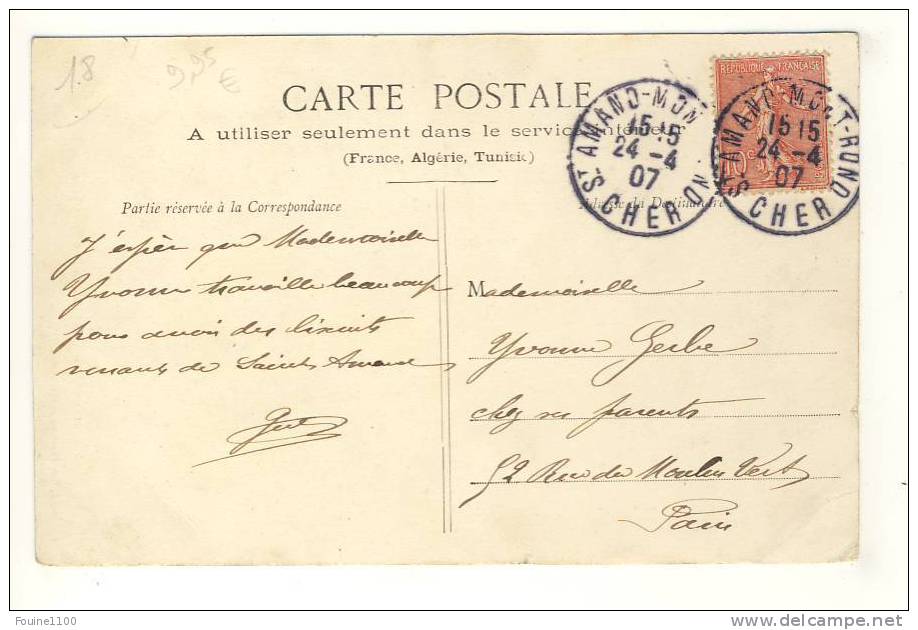 18
9,95 €
CARTE POSTALE
A utiliser seulement dans le service intérieur
(France, Algérie, Tunisie)
REPUBLIQUE FRANÇAISE
10 c
ST AMAND-MON ROND
15 15
24 -4
07
CHER
ST AMAND-MONT-ROND
15 15
24 -4
07
CHER
Partie réservée à la Correspondance
Adresse du Destinataire
J'espère que Mademoiselle
Yvonne travaille beaucoup
pour avoir des biscuits
venants de Saint Amand
Mademoiselle
Yvonne Gerbe
chez ses parents
52 Rue du Moulin Vert
Paris
Foune1100
www.delcampe.net